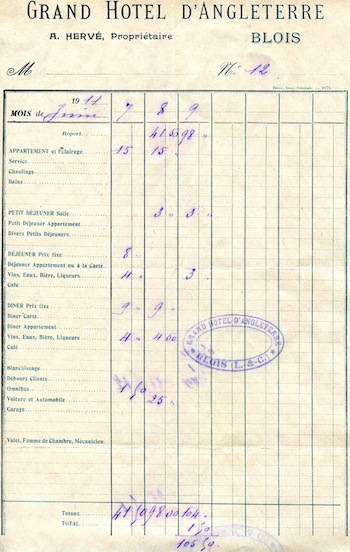 GRAND HOTEL D'ANGLETERRE
A. HERVÉ, Propriétaire BLOIS
M N° 12
1911
MOIS de Juin 7 8 9
Report 41 50 98 "
APPARTEMENT et Éclairage 15 15 "
Service
Chauffage
Bains
PETIT DÉJEUNER Salle 3 " 3 "
Petit Déjeuner Appartement
Divers Petits Déjeuners
DÉJEUNER Prix fixe 8 "
Déjeuner Appartement ou à la Carte
Vins, Eaux, Bière, Liqueurs 4 " 3 "
Café
DINER Prix fixe 9 " 9 "
Diner Carte
Diner Appartement
Vins, Eaux, Bière, Liqueurs 4 " 4 50
Café
GRAND HOTEL D'ANGLETERRE
BLOIS (L.-&-C.)
Blanchissage
Débours Clients
Omnibus 1 50
Voiture et Automobile 25 "
Garage
Valet, Femme de Chambre, Mécanicien
Totaux 41 50 98 00 104 "
TOTAL 1 50
105 50